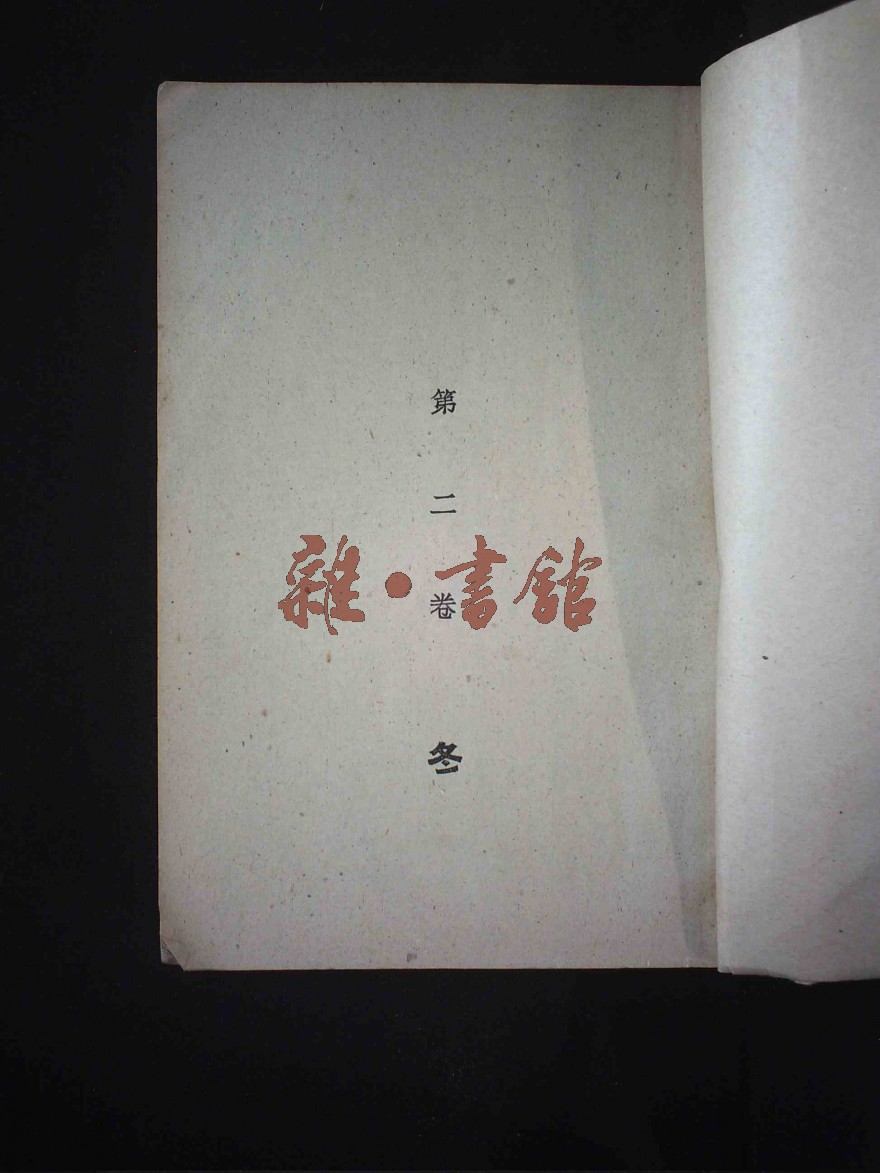 第二卷
冬
雜·書館